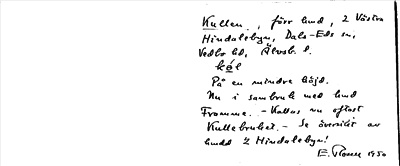 Kullen, förr hmd, 2 Västra
Hindalebyn, Dals-Eds sn,
Vedbo hd, Älvsb. l.
kól
På en mindre höjd.
Nu i sambruk med hmd
Fromme. - Kallas nu oftast
Kullebruket. - Se översikt av
hmd 2 Hindalebyn!
E. 1950